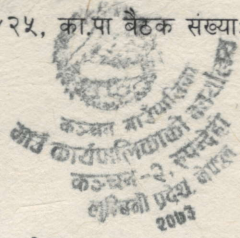 २५, का.पा बैठक संख्या
कञ्चन गाउँपालिका
गाउँ कार्यपालिकाको कार्यालय
कञ्चन -२, रुपन्देही
लुम्बिनी प्रदेश, नेपाल
२०७३